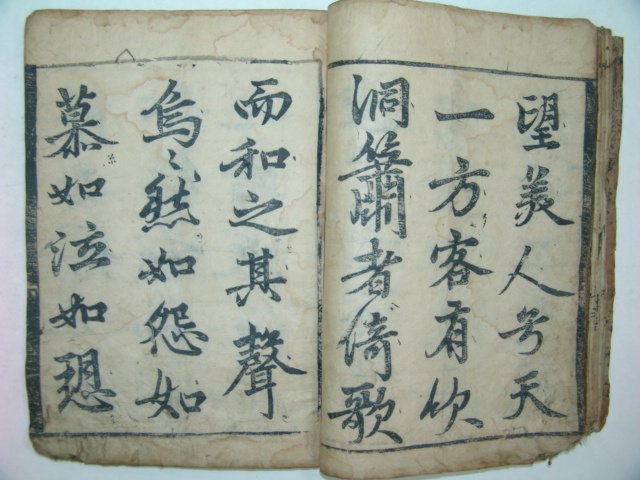 望美人兮天
一方客有吹
洞簫者倚歌
而和之其聲
烏〻然如怨如
慕如泣如愬